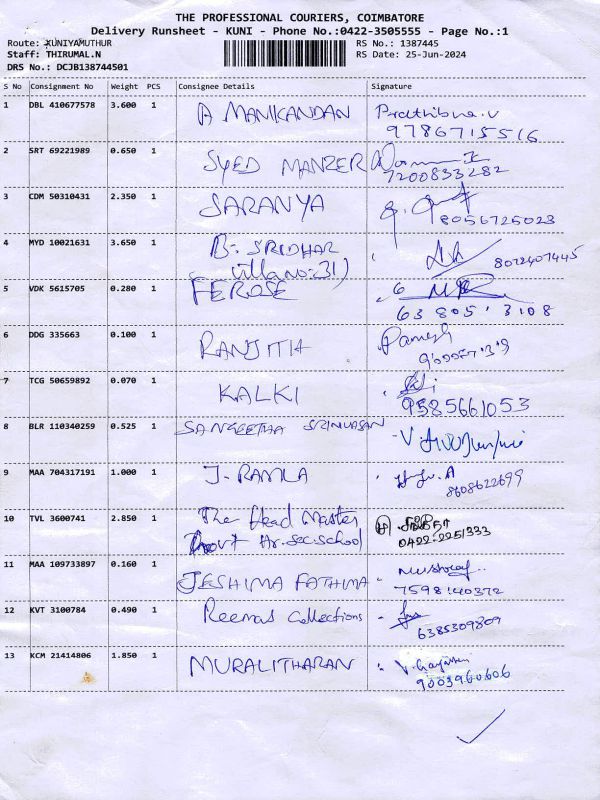 THE PROFESSIONAL COURIERS, COIMBATORE
Delivery Runsheet - KUNI - Phone No.:0422-3505555 - Page No.:1
Route: KUNIYAMUTHUR
RS No.: 1387445
Staff: THIRUMAL.N
RS Date: 25-Jun-2024
DRS No.: DCJB138744501
S No Consignment No Weight PCS Consignee Details Signature
1 DBL 410677578 3.600 1 A MANIKANDAN Prathibha.v
9786715516
2 SRT 69221989 0.650 1 SYED MANZER
7200833282
3 CDM 50310431 2.350 1 SARANYA
8056725023
4 MYD 10021631 3.650 1 B. SRIDHAR
(villa no: 31) 8022407445
5 VDK 5615705 0.280 1 FEROSE
63 805 3108
6 DDG 335663 0.100 1 RANJITH Ramesh
7 TCG 50659892 0.070 1 KALKI
9585661053
8 BLR 110340259 0.525 1 SANGEETHA SRINIVASAN
9 MAA 704317191 1.000 1 J. RAMLA
8608622699
10 TVL 3600741 2.850 1 The Head Master
Govt Hr.Sec.School 0422-2251333
11 MAA 109733897 0.160 1 JESHIMA FATHIMA
7598140372
12 KVT 3100784 0.490 1 Reemas Collections
6385309809
13 KCM 21414806 1.850 1 MURALITHARAN
9003960606